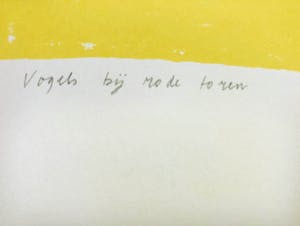 Vogels bij rode toren